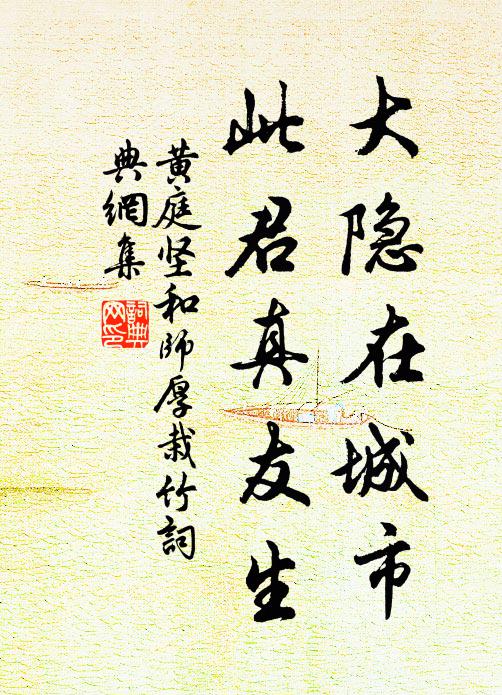 大隐在城市
此君真友生
黄庭坚和師厚栽竹詞
典網集
詞典
网印